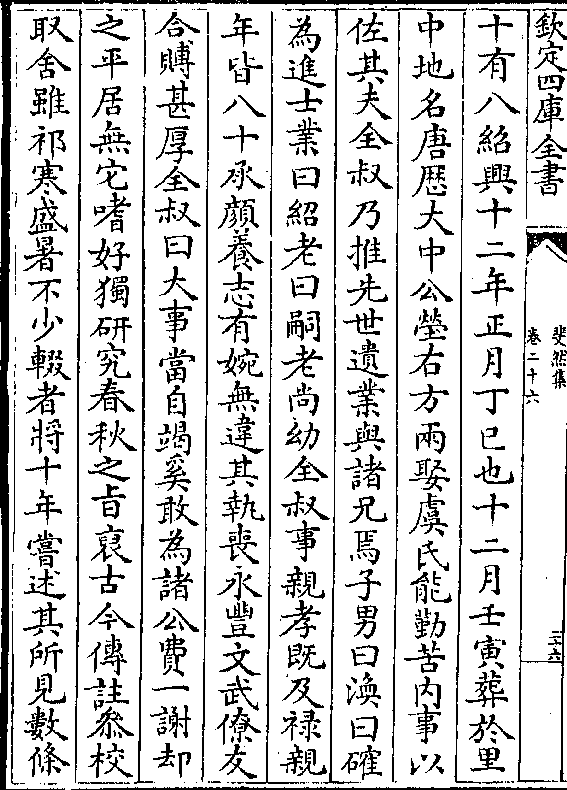 欽定四庫全書
斐然集
卷二十六
三六
十有八紹興十二年正月丁巳也十二月壬寅葬於里
中地名唐歴大中公塋右方兩娶虞氏能勤苦内事以
佐其夫全叔乃推先世遺業與諸兄焉子男曰渙曰確
為進士業曰紹老曰嗣老尚幼全叔事親孝既及禄親
年皆八十承顔養志有婉無違其執喪永豐文武僚友
合賻甚厚全叔曰大事當自竭奚敢為諸公費一謝却
之平居無它嗜好獨研究春秋之㫖裒古今傳註叅校
取舍雖祁寒盛暑不少輟者將十年嘗述其所見數條